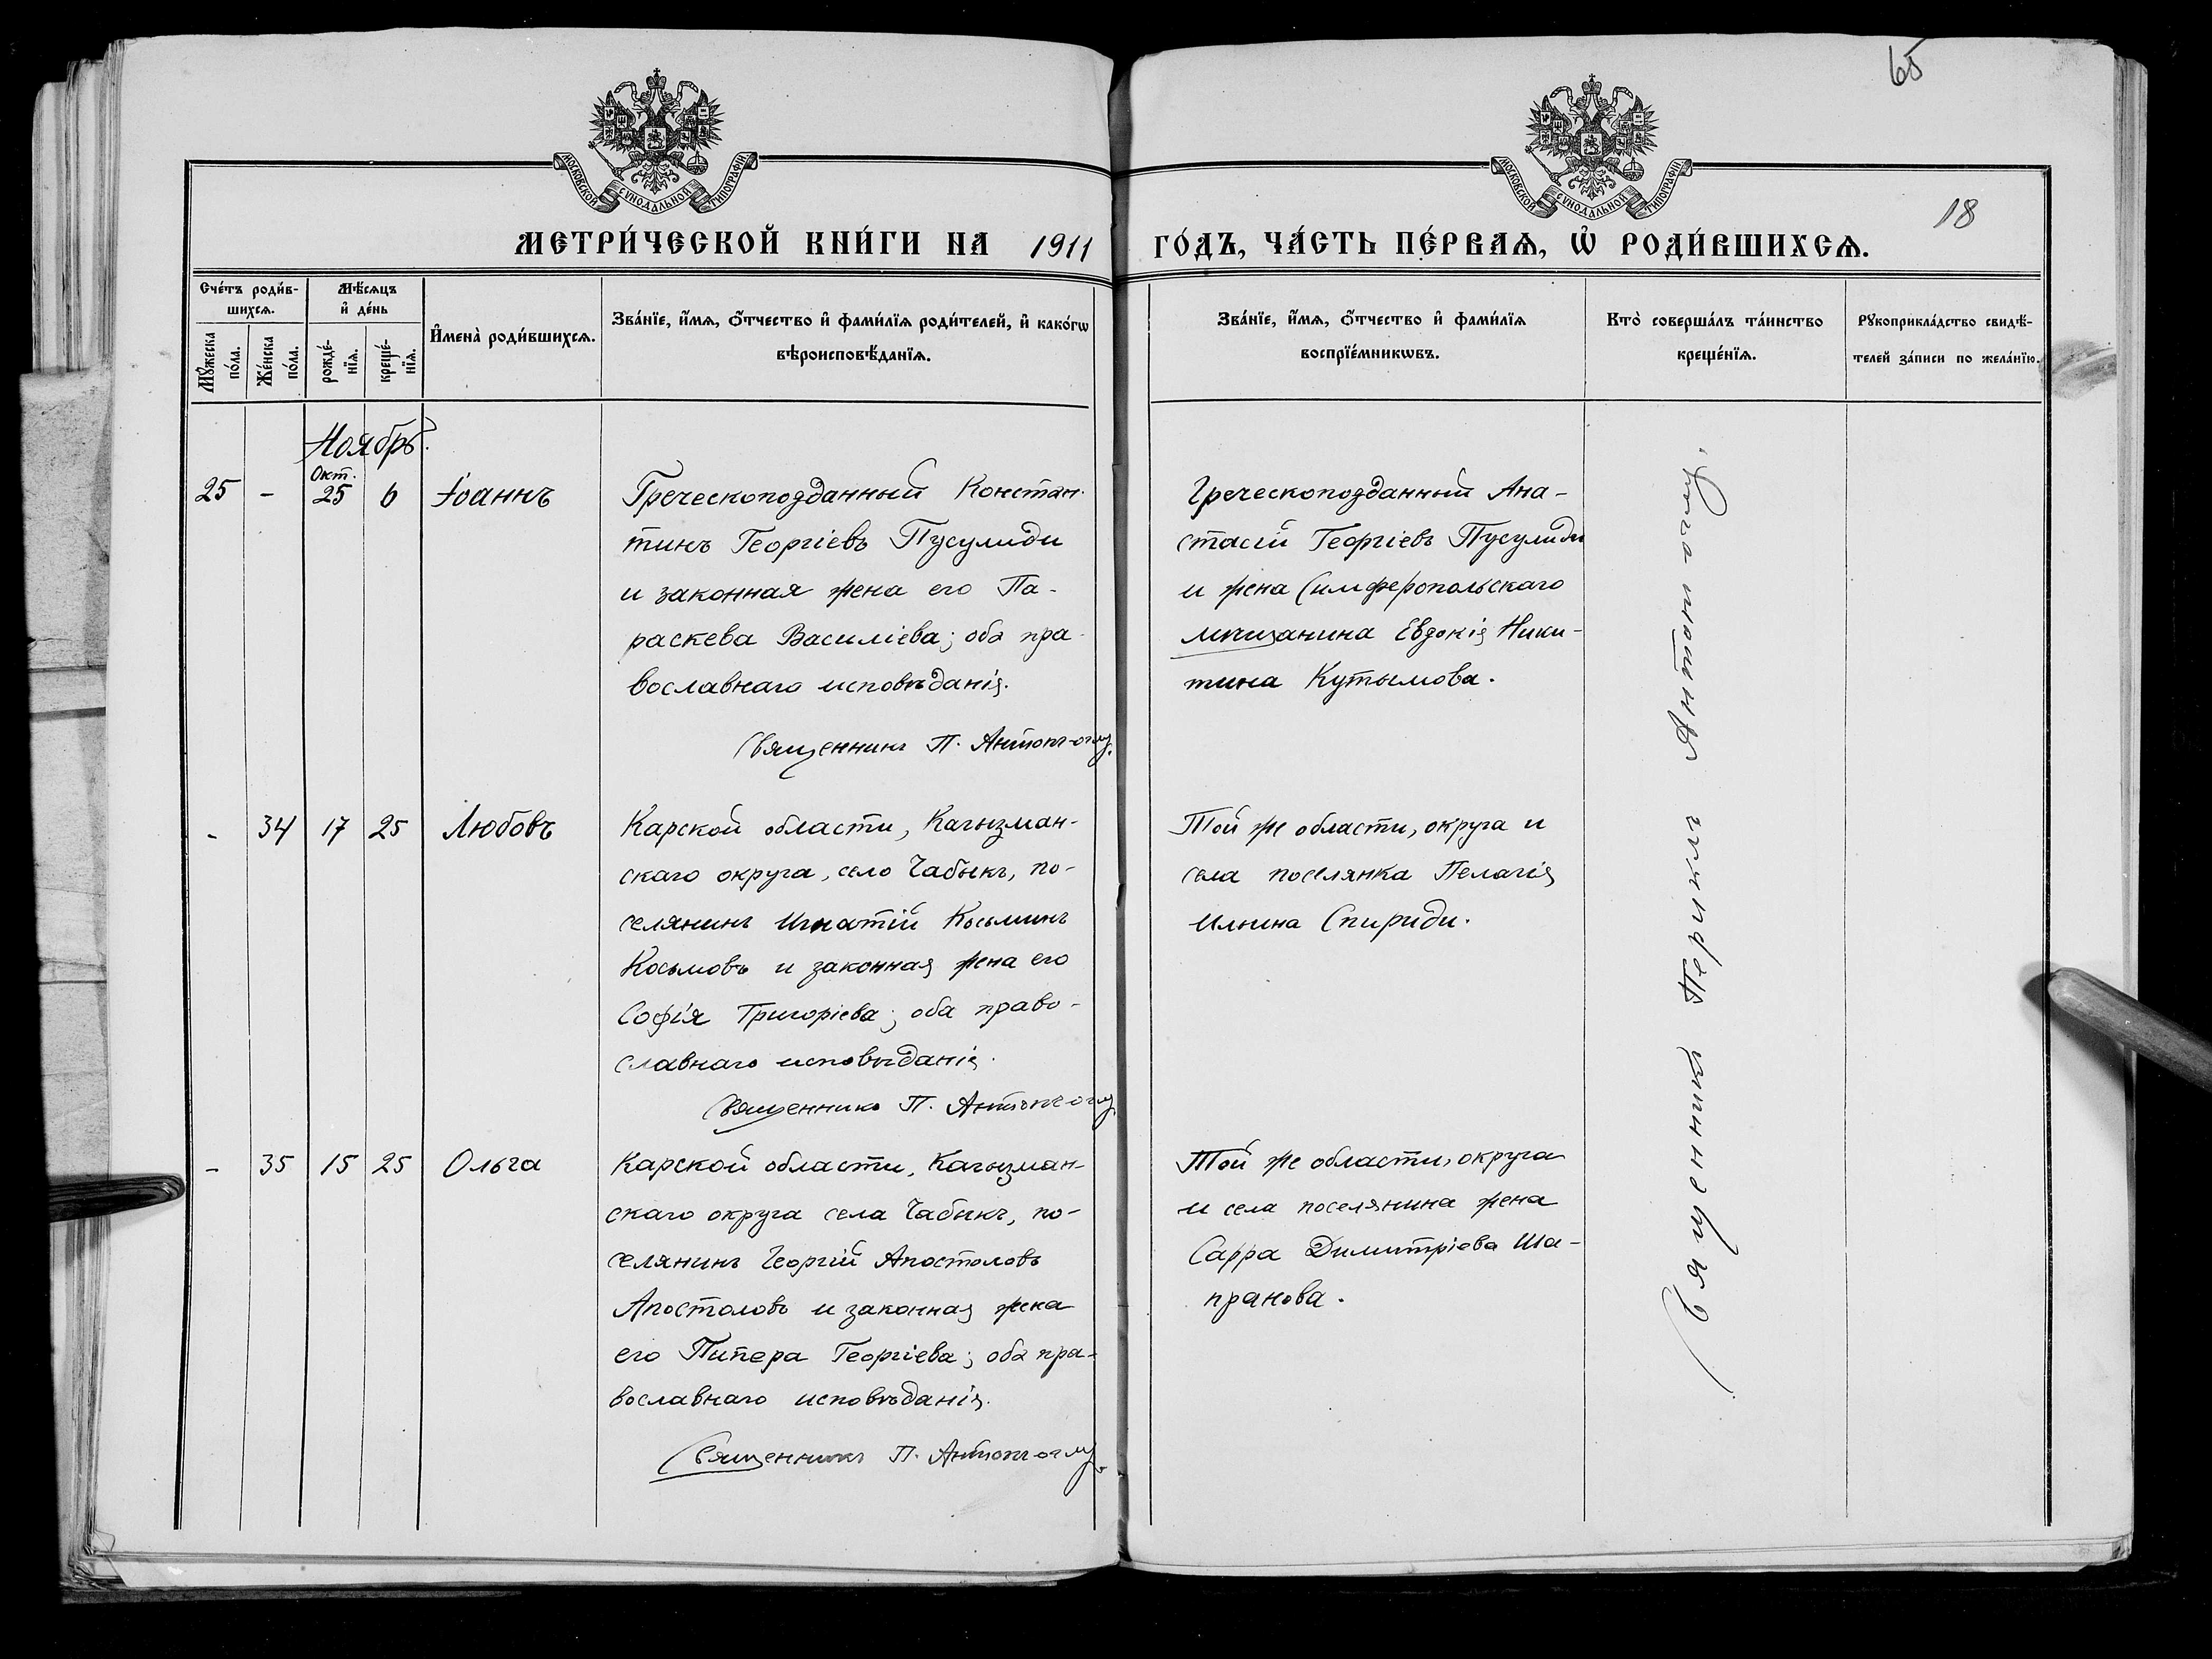 65
18
МОСКОВСКОЙ СѴНОДАЛЬНОЙ ТИПОГРАФІИ
МОСКОВСКОЙ СѴНОДАЛЬНОЙ ТИПОГРАФІИ
МЕТРИ́ЧЕСКОЙ КНИ́ГИ НА 1911 ГО́ДЪ, ЧА́СТЬ ПЕ́РВАѦ, Ѡ҆ РОДИ́ВШИХСѦ.
Сче́тъ роди́в-
шихсѧ.
Мꙋ́жеска по́ла.
Же́нска по́ла.
Мѣ́сѧцъ
и҆ де́нь
рожде́-
нїѧ.
креще́-
нїѧ.
И҆мена̀ роди́вшихсѧ.
Зва́нїе, и҆́мѧ, ѻ҆́тчество и҆ фами́лїѧ роди́телей, и҆ како́гѡ
вѣроисповѣ́данїѧ.
Зва́нїе, и҆́мѧ, ѻ҆́тчество и҆ фами́лїѧ
воспрїе́мникѡвъ.
Кто̀ соверша́лъ та́инство
креще́нїѧ.
Рꙋкоприкла́дство свидѣ́-
телей за́писи по жела́нїю.
Ноябрь.
Окт.
25 - 25 6 Іоаннъ
Греческоподданный Констан-
тинъ Георгіевъ Пусулиди
и законная жена его Па-
раскева Василіева; оба пра-
вославнаго исповѣданія.
Священникъ П. Антонъ-оглу.
Греческоподданный Ана-
стасій Георгіевъ Пусулиди
и жена Симферопольскаго
мѣщанина Евдокія Ники-
тина Кутымова.
- 34 17 25 Любовь
Карской области, Кагызман-
скаго округа, село Чабыкъ, по-
селянинъ Игнатій Косьминъ
Косьмовъ и законная жена его
Софія Григоріева; оба право-
славнаго исповѣданія.
Священникъ П. Антонъ-оглу
Той же области, округа и
села поселянка Пелагія
Ильина Спириди.
- 35 15 25 Ольга
Карской области, Кагызман-
скаго округа села Чабыкъ, по-
селянинъ Георгій Апостоловъ
Апостоловъ и законная жена
его Пипера Георгіева; оба пра-
вославнаго исповѣданія.
Священникъ П. Антонъ-оглу.
Той же области, округа
и села поселянина жена
Сарра Димитріева Ша-
пранова.
Священник Периклъ Антон оглу.